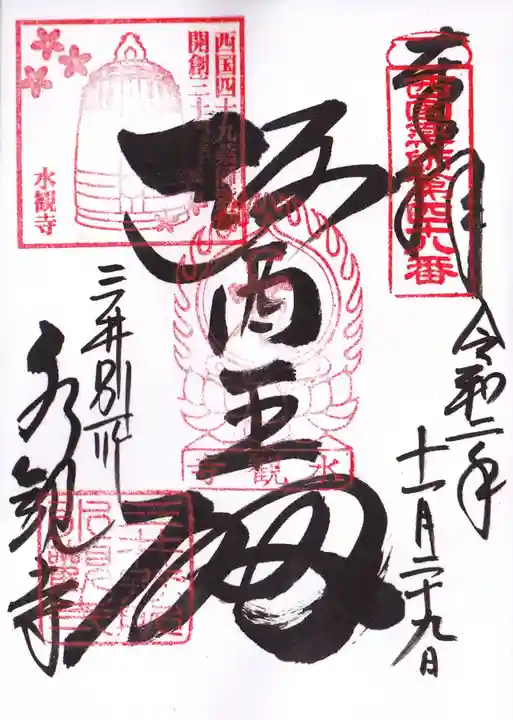 奉拝
西国薬師第四十八番
令和二年
十一月二十九日
医王殿
水観寺
西国四十九薬師霊場
開創三十周年
水観寺
三井別所
水観寺